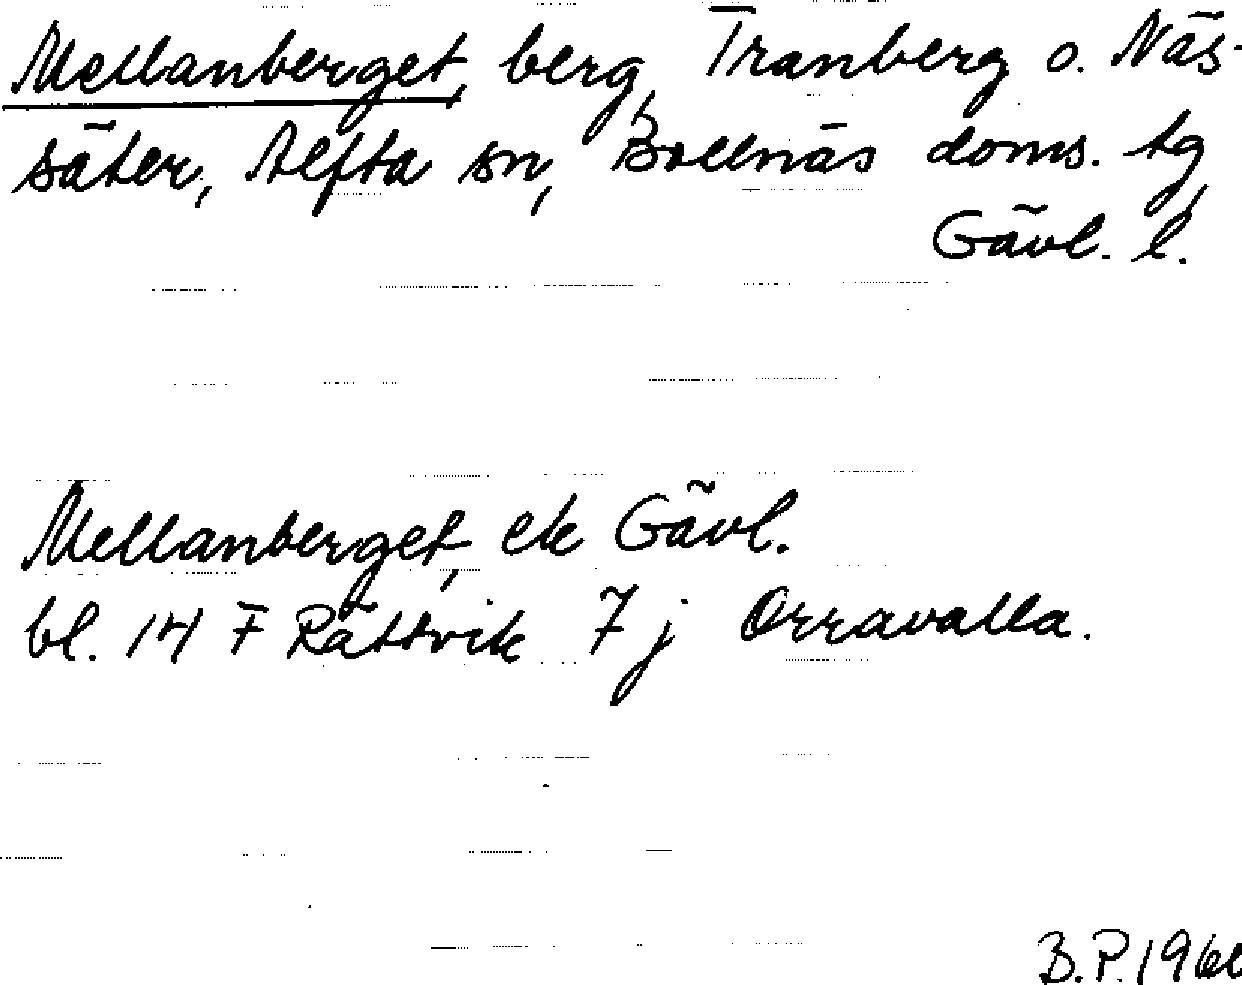 Mellanberget, berg, Tranberg o. Näs-
säter, Alfta sn, Bollnäs doms. tg,
Gävl. l.
Mellanberget, ek Gävl.
bl. 14 F Rättvik 7 j Orravalla.
B.P.